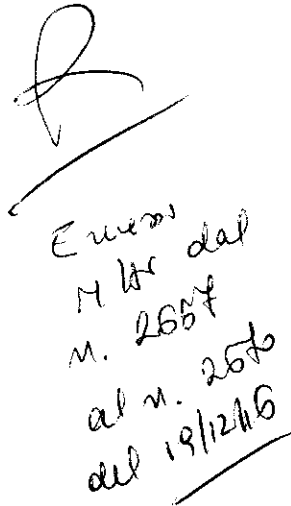 Emessi
M dal
n. 2657
al n. 2670
del 19/12/16